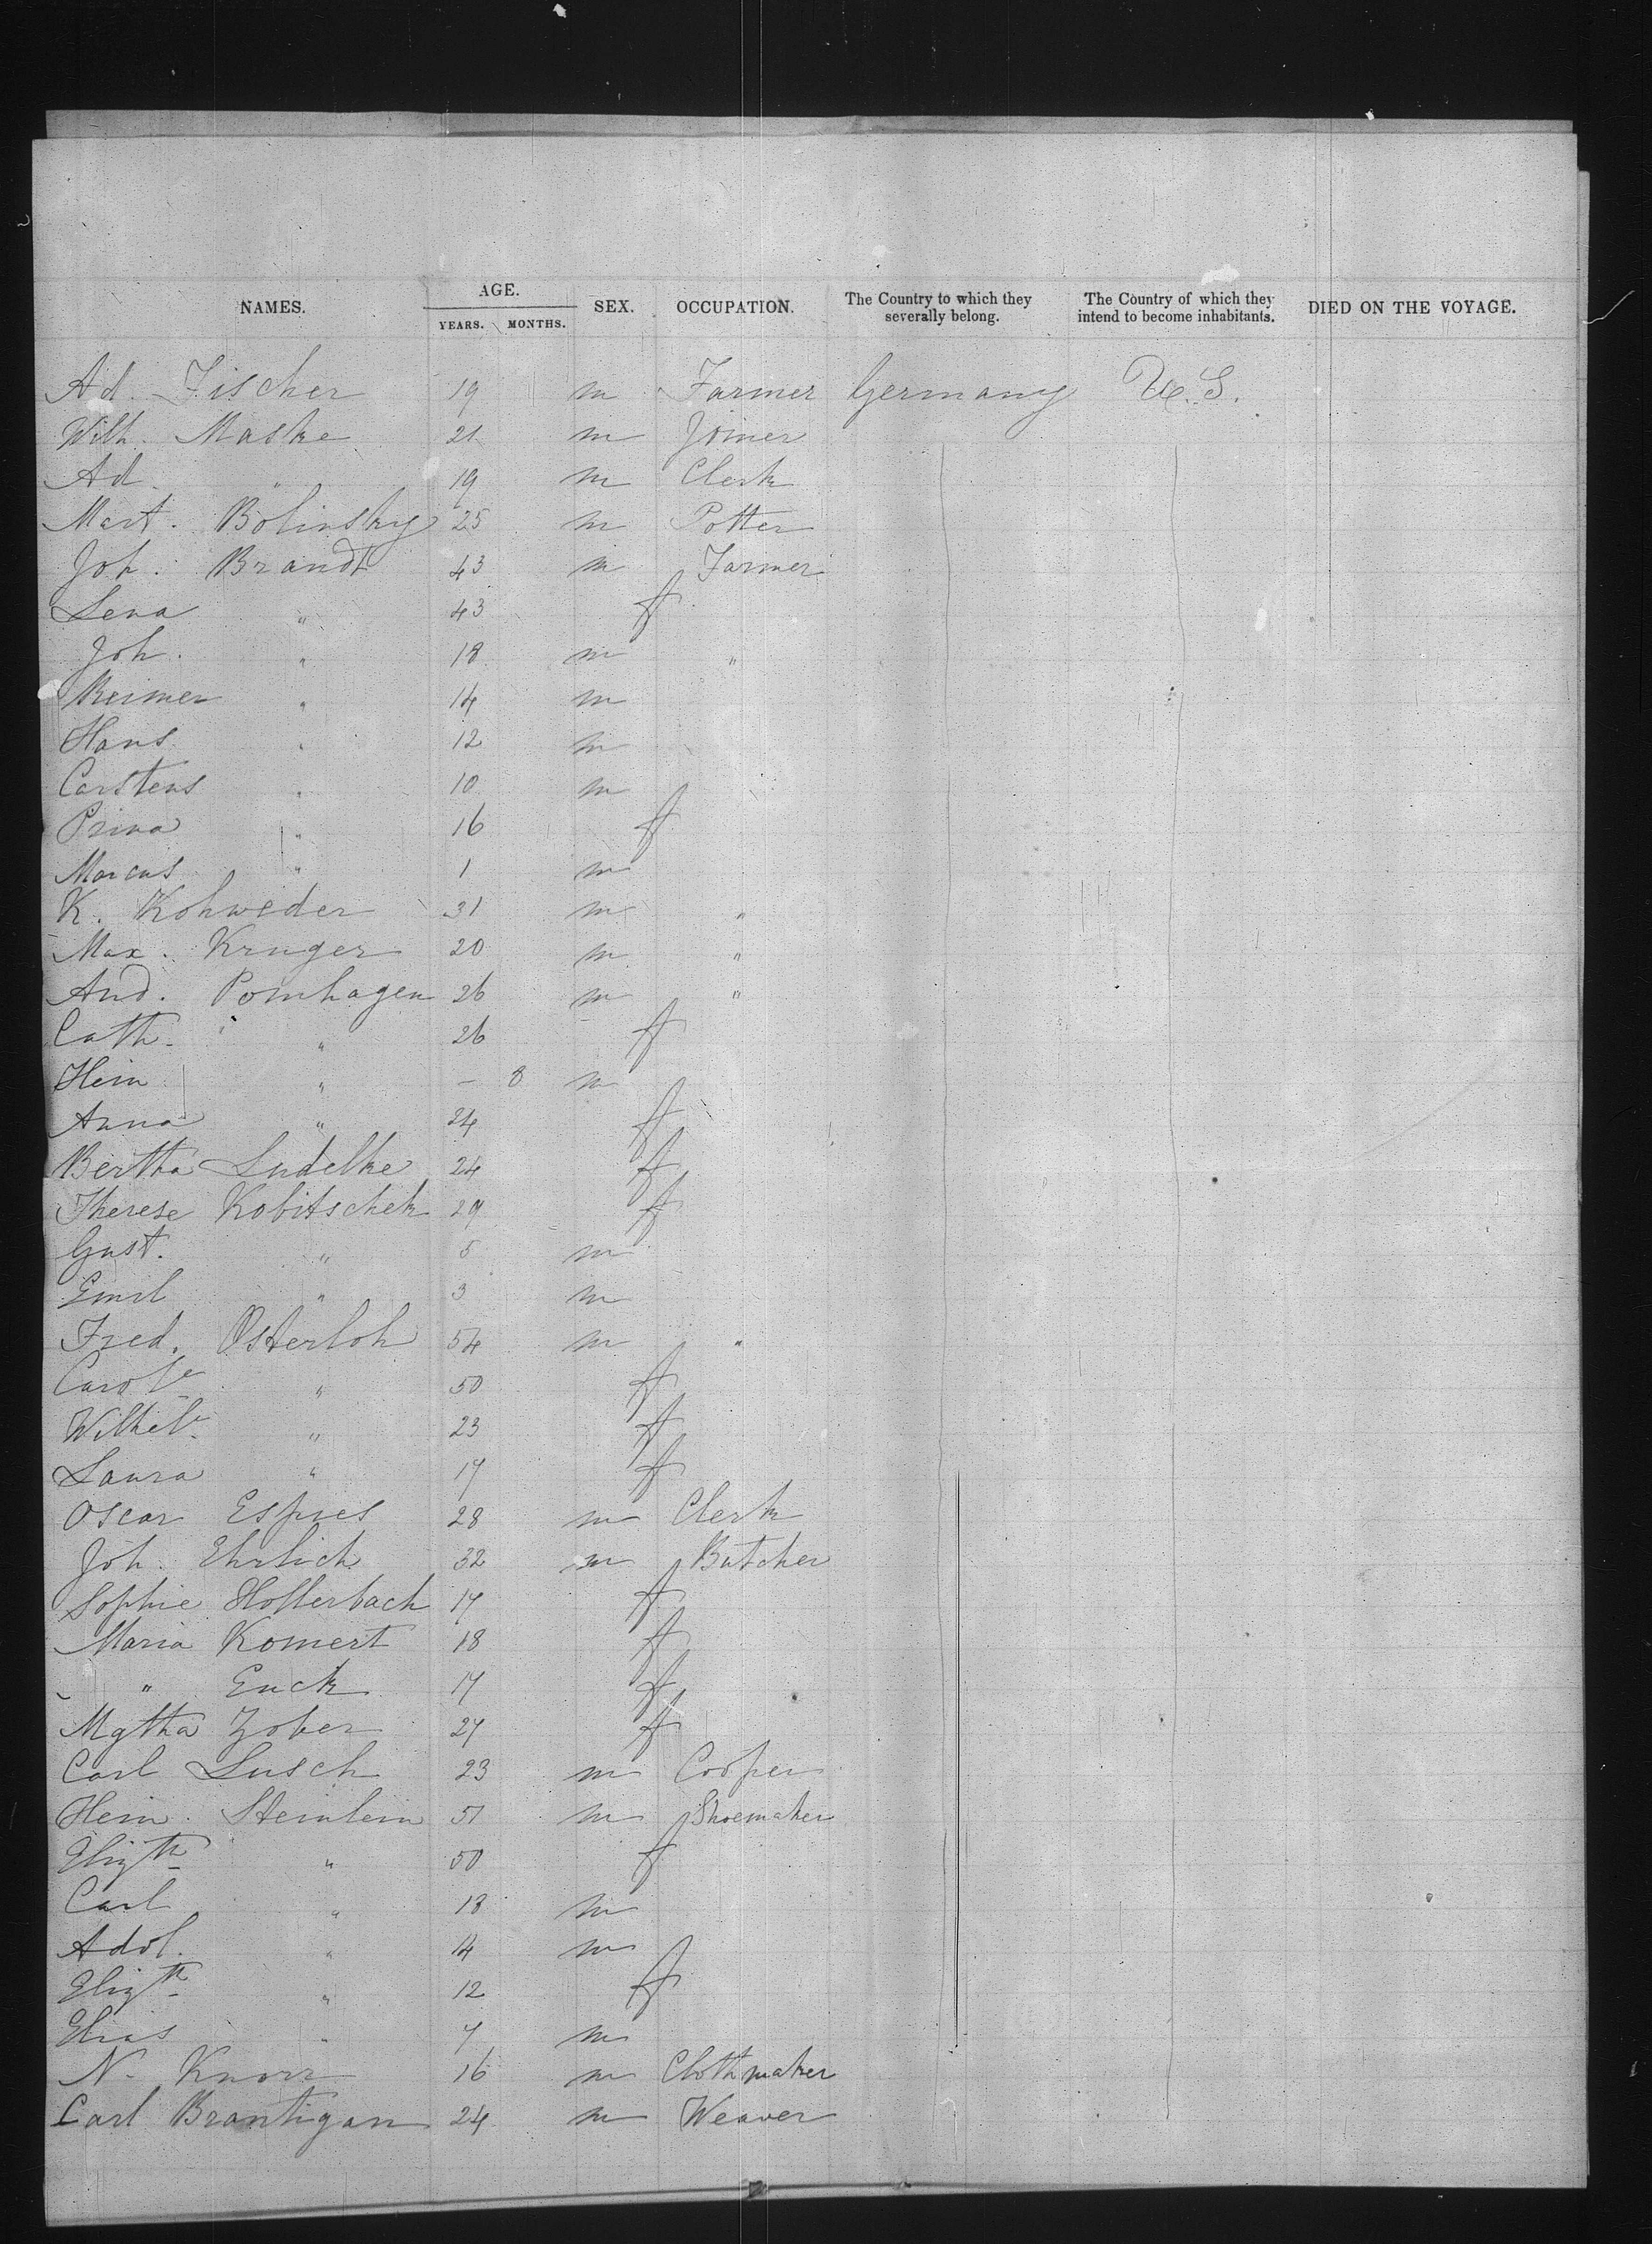 NAMES. AGE. SEX. OCCUPATION. The Country to which they severally belong. The Country of which they intend to become inhabitants. DIED ON THE VOYAGE.
YEARS. MONTHS.
Ad. Fischer 19 m Farmer Germany U.S.
Wilh. Maske 21 m Joiner
Ad. " 19 m Clerk
Mart. Bolinsky 25 m Potter
Joh. Brandt 43 m Farmer
Lena " 43 f
Joh. " 18 m "
Reimer " 14 m
Hans " 12 m
Carstens " 10 m
Prina " 16 f
Marcus " 1 m
K. Kohweder 31 m "
Max. Kruger 20 m "
And. Pomhagen 26 m "
Cath. " 26 f
Hein " – 8 m
Anna " 24 f
Bertha Ludelke 24 f
Therese Kobitschek 29 f
Gust. " 5 m
Emil " 3 m
Fred. Osterloh 54 m "
Carole " 50 f
Wilhel. " 23 f
Laura " 17 f
Oscar Espies 28 m Clerk
Joh. Ehrlich 32 m Butcher
Sophie Hollerbach 17 f
Maria Komert 18 f
" Enck 17 f
Mgtha Zober 27 f
Carl Lusch 23 m Cooper
Hein. Steinlein 51 m Shoemaker
Elizth " 50 f
Carl " 18 m
Adol. " 14 m
Elizth " 12 f
Elias " 7 m
N. Knorr 16 m Clothmaker
Carl Brantigan 24 m Weaver